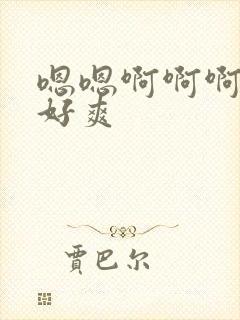 嗯嗯啊啊啊
好爽
賈巴尔